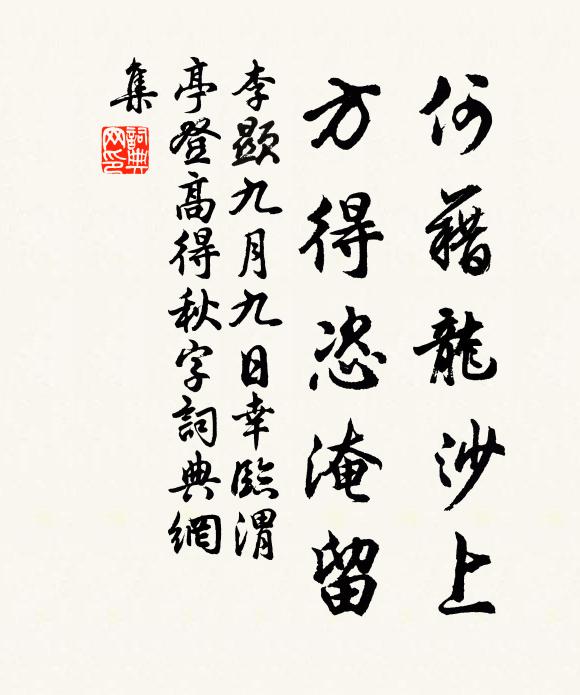 何藉龍沙上
方得恣淹留
李顯九月九日幸臨渭
亭登高得秋字詞典網
集
詞典网印